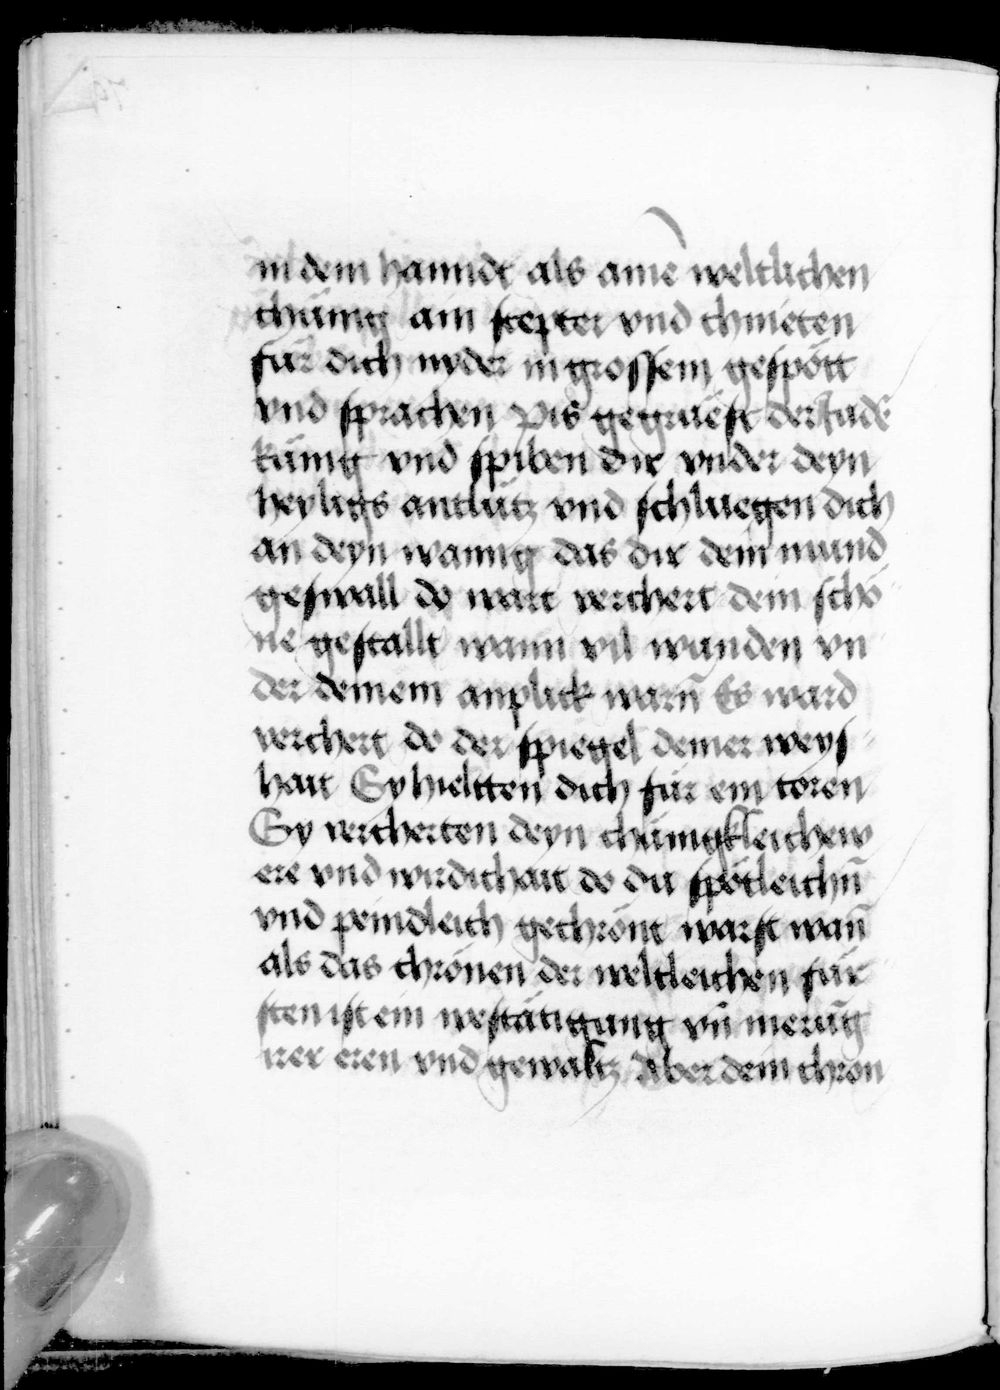 in dem hanndt als aine᷑ weltlichen
chünig ain scepter vnd chnieten
für dich nyder in grossem gespött
vnd sprachen Pis gegrüest der Jude᷑
künig vnd spiben dir vnder deyn
heyligs antlütz vnd schluegen dich
an deyn wanng das dir dein mund
geswall do wart verchert dein schö
ne gestallt wann vil wunden vn
der deinem anplick warn̄ Es ward
verchert do der spiegel deiner weys-
hait Sy hieltten dich für ein toren
Sy vercherten deyn chünigkleichew
ere vnd wirdichait do du spötleichn̄
vnd peindleich gechrönt warst wan̄
als das chrönen der weltleichen für-
sten ist ein westätigung vn̄ merūg
irer eren vnd gewaltz Aber dein chron